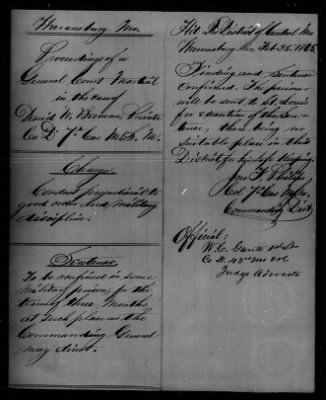 Warrensburg Mo.
Proceedings of a
General Court Martial
in the case of
David W. Private
Co D. 7th Cav M.S.M.
Charge
Conduct prejudicial to
good order and military
discipline.
Sentence
To be confined in some
military prison for the
term of three months,
at such place as the
Commanding General
may direct.
Hd Qrs District of Central Mo
Warrensburg Mo, Feb 25, 1865.
Finding and Sentence
Confirmed. The prisoner
will be sent to St. Louis
for execution of the Sen-
tence, there being no
suitable place in this
District for his safe keeping.
Jno F. Philips
Col 7th Cav M.S.M.
Commanding Dist.
Official:
W. C. Gantt 1st Lt
Co D. 43rd Mo Vol
Judge Advocate